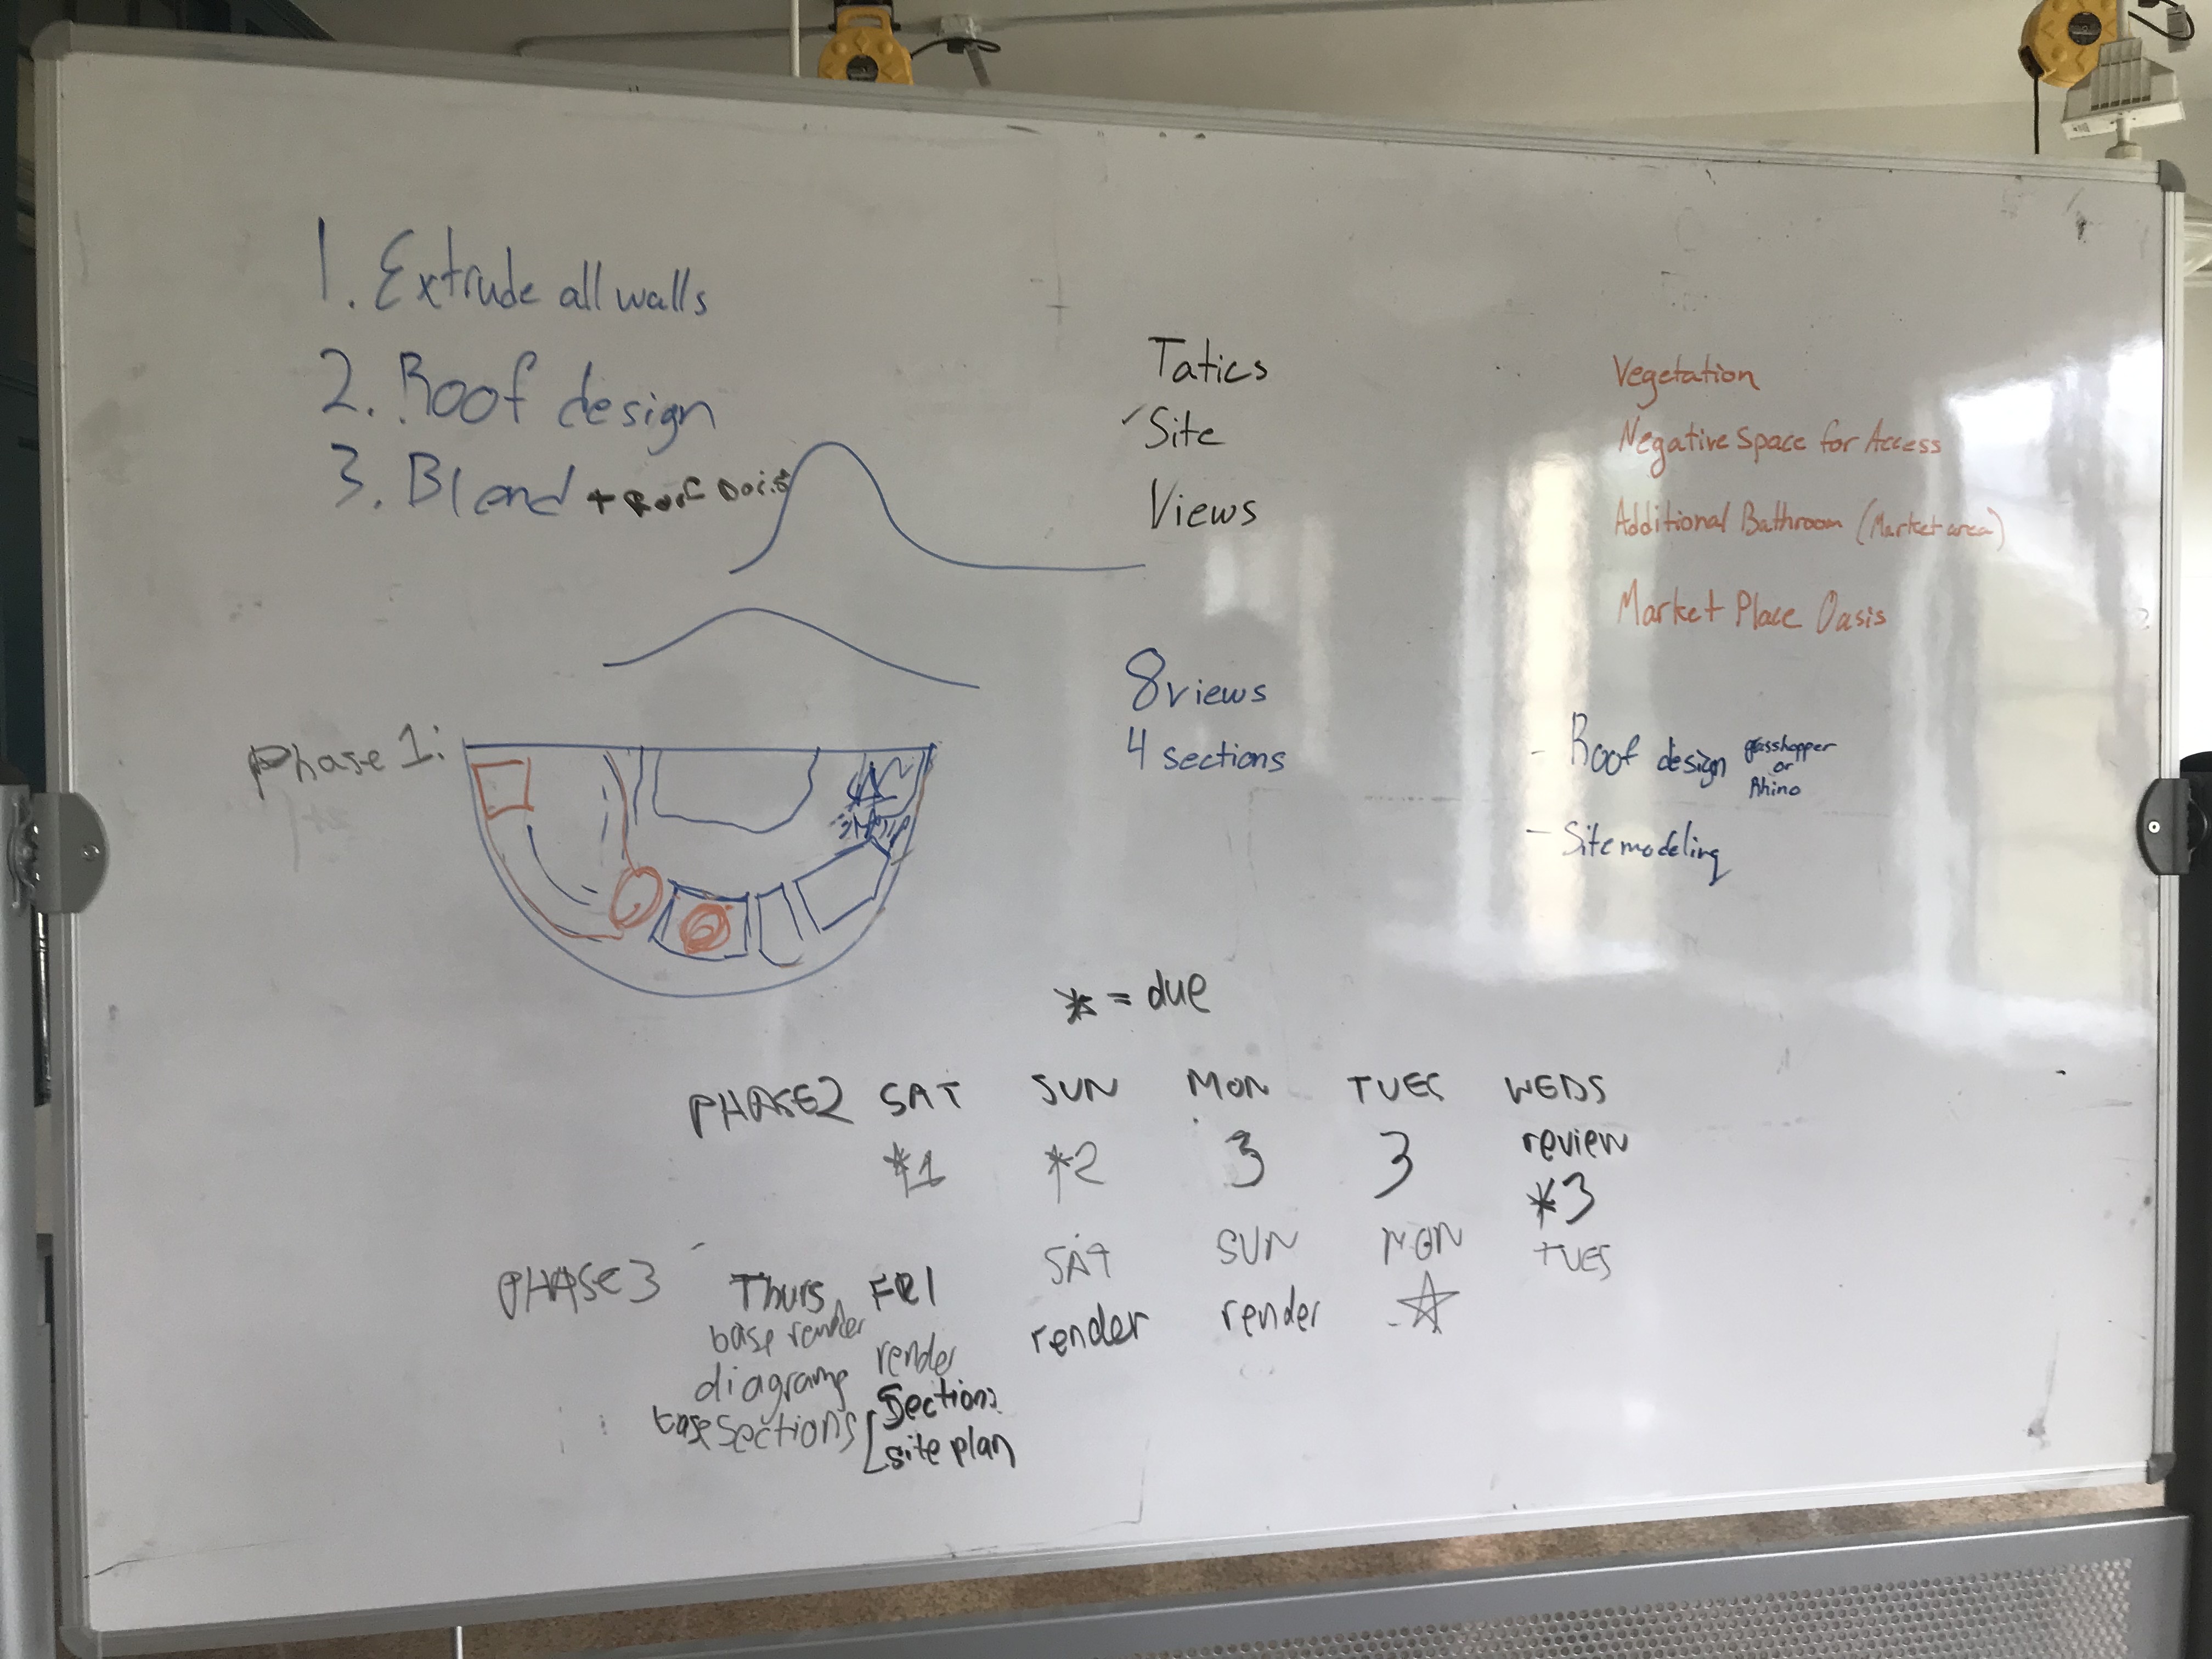 1. Extrude all walls
2. Roof design
3. Blend +
Tatics
Site
Views
Vegetation
Negative Space for Access
Additional Bathroom (Market area)
Market Place Oasis
8 views
4 sections
- Roof design grasshopper or Rhino
- Site modeling
Phase 1:
* = due
PHASE2 SAT SUN MON TUES WEDS
*1 *2 3 3 review
*3
PHASE 3 Thurs FRI SAT SUN MON TUES
base render render render render
diagrams Sections
base sections site plan